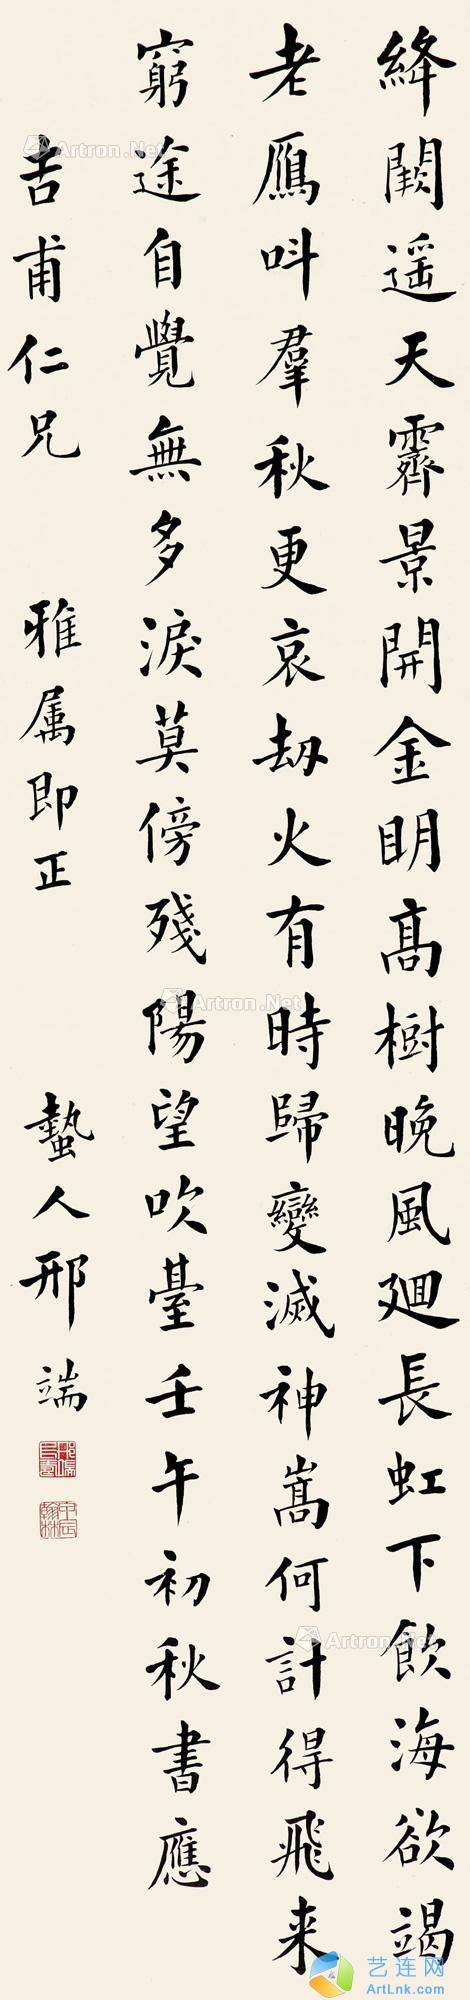 絳闕遥天霽景開金明高樹晚風廻長虹下飲海欲竭
老鴈叫羣秋更哀劫火有時歸變滅神嵩何計得飛来
窮途自覺無多淚莫傍殘陽望吹臺壬午初秋書應
吉甫仁兄雅属即正蟄人邢端
邢端之印
甲辰翰林
Artron.Net
Artron.Net
Artron.Net
Artron.Net
艺连网
ArtLnk.com